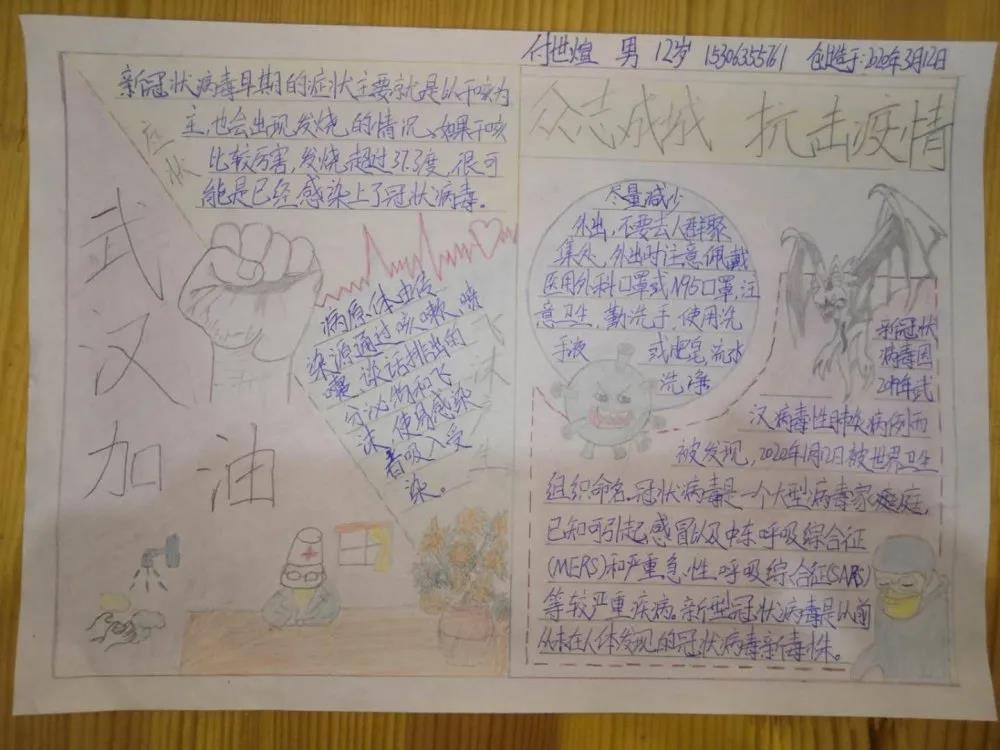 付世煊 男 12岁 15306355761 创造于:2020年3月12日
众志成城 抗击疫情
症状
新冠状病毒早期的症状主要就是以干咳为
主,也会出现发烧的情况、如果干咳
比较厉害,发烧超过37.3度,很可
能是已经感染上了冠状病毒。
武汉加油
病原体由传
染源通过咳嗽、喷
嚏、谈话排出的
分泌物和飞
沫,使易感染
者吸入受
染。
尽量减少
外出,不要去人群聚
集处,外出时注意佩戴
医用外科口罩或N95口罩,注
意卫生,勤洗手,使用洗
手液 或肥皂,流水
洗净
新冠状
病毒因
2019年武
汉病毒性肺炎病例而
被发现,2020年1月12日被世界卫生
组织命名.冠状病毒是一个大型病毒家庭,
已知可引起感冒以及中东呼吸综合征
(MERS)和严重急性呼吸综合征(SARS)
等较严重疾病.新型冠状病毒是以前
从未在人体发现的冠状病毒新毒株。